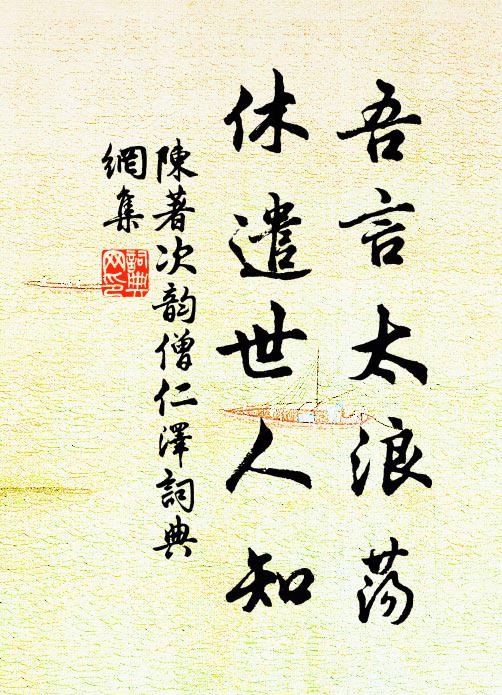 吾言太浪蕩
休遣世人知
陳著次韵僧仁澤詞典
網集
詞典
网印